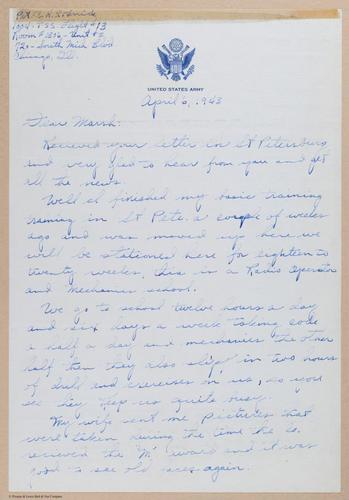 Pvt. R. K.
Flight #13
Room # - Unit #2
720 - South Mich Blvd
Chicago, Ill.
UNITED STATES ARMY
April 6, 1943
Dear Marsh:
Recieved your letter in St Petersburg
and very glad to hear from you and get
all the news.
Well I finished my basic training
in St Pete. a couple of weeks
ago and was moved up here, we
will be stationed here for eighteen to
twenty weeks, this is a Radio Operator
and Mechanics school.
We go to school twelve hours a day
and six days a week taking code
a half a day and mechanics the other
half then they also slip in two hours
of drill and exercises on us, so you
see they keep us quite busy.
My wife sent me pictures that
were taken during the time the Co.
recieved the "M" award and it was
good to see old faces again.